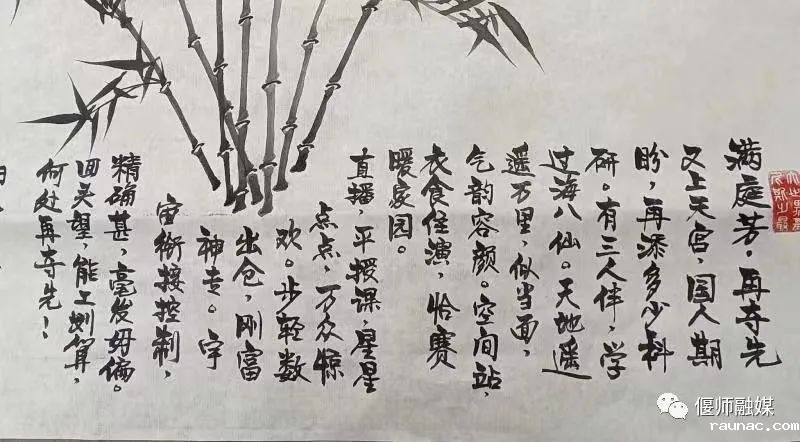 满庭芳·再夺先
又上天宫,国人期
盼,再添多少科
研。有三人伴,学
过海八仙。天地遥
遥万里,似当面,
气韵容颜。空间站,
衣食住演,恰赛
暖家园。
直播,平授课,星星
点点,万众惊
欢。步轻数
出仓,刚富
神专。宇
宙衔接控制,
精确甚,毫发毋偏。
回望,能工划算,
何处再夺先!
偃师融媒
raunac.com